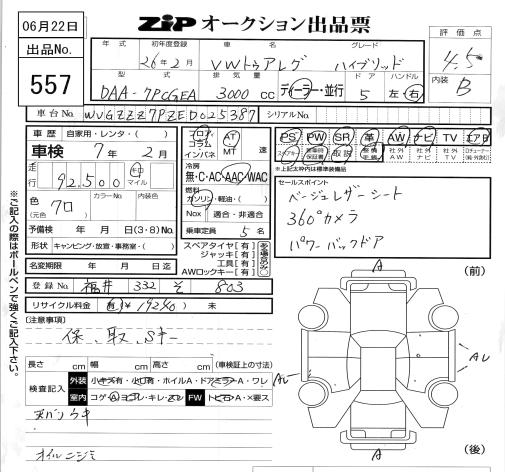 06月22日
出品No.
557
ZIP オークション出品票
評価点
4.5
内装 B
年式 初年度登録 車名 グレード
26年2月 VWトゥアレグ ハイブリッド
型式 排気量 ドア ハンドル
DAA-7PCGEA 3000cc ディーラー・並行 5 左・右
車台No. WVGZZZ7PZED025387 シリアルNo.
車歴 自家用・レンタ・( )
車検 7年 2月
走行 92,500 キロ マイル
色 クロ (元色) カラーNo. 内装色
予備検 年 月 日(3・8)No.
形状 キャンピング・放宣・事務室・( )
フロア コラム インパネ AT MT 速
冷房
無・C・AC・AAC・WAC
燃料
ガソリン・軽油・( )
Nox 適合・非適合
乗車定員 5名
PS PW SR 革 AW ナビ TV エアB
スペアキー 新車時保証書 取説 整備手帳 社外AW 社外ナビ 社外TV
※上記太枠内は標準装備品
セールスポイント
ベージュレザーシート
360°カメラ
パワーバックドア
スペアタイヤ[有]
ジャッキ[有]
工具[有]
AWロックキー[有]
名変期限 年 月 日迄
登録No. 福井 332 そ 803
リサイクル料金 有 ¥19240) 未
(注意事項)
保、取、Sキー
長さ cm 幅 cm 高さ cm (車検証上の寸法)
検査記入 外装 小キズ有・小凹有・ホイルA・ドアミラーA・ワレ
室内 コゲA・ヨゴレ・キレ・スレ FW トビ石A・×要ス
オイルニジミ
※ご記入の際はボールペンで強くご記入下さい。
(前)
A
A
(後)